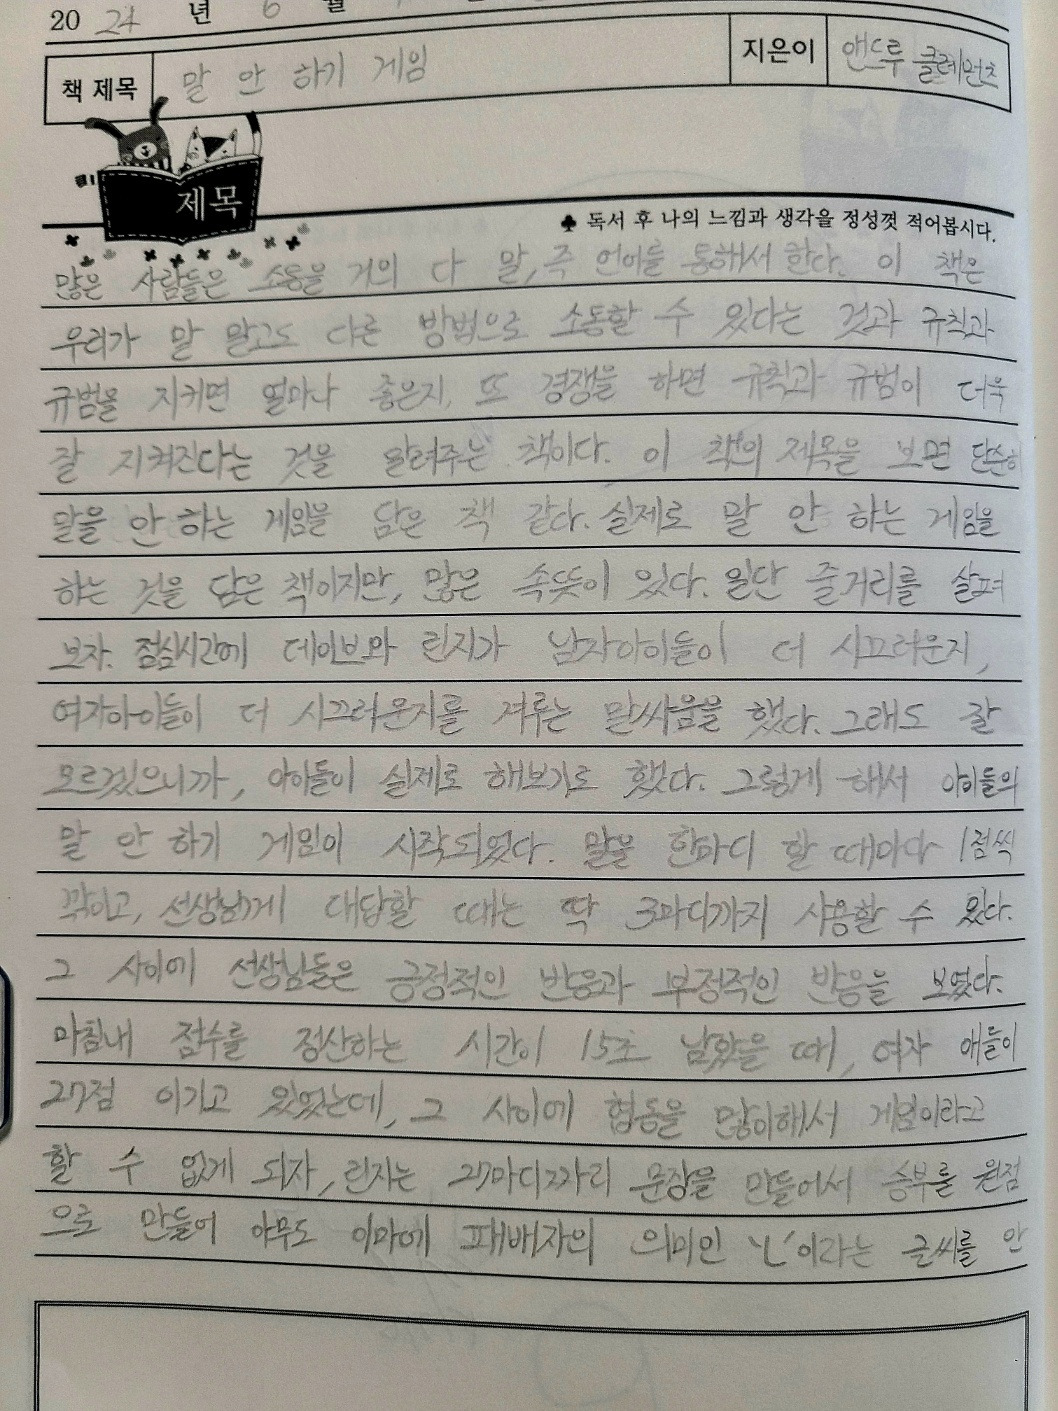 20 24 년 6 월
책 제목 말 안 하기 게임 지은이 앤드루 클레먼츠
제목
♣ 독서 후 나의 느낌과 생각을 정성껏 적어봅시다.
많은 사람들은 소통을 거의 다 말, 즉 언어를 통해서 한다. 이 책은
우리가 말 말고도 다른 방법으로 소통할 수 있다는 것과 규칙과
규범을 지키면 얼마나 좋은지, 또 경쟁을 하면 규칙과 규범이 더욱
잘 지켜진다는 것을 알려주는 책이다. 이 책의 제목을 보면 단순히
말을 안 하는 게임을 담은 책 같다. 실제로 말 안 하는 게임을
하는 것을 담은 책이지만, 많은 속뜻이 있다. 일단 줄거리를 살펴
보자. 점심시간에 데이브와 린지가 남자아이들이 더 시끄러운지,
여자아이들이 더 시끄러운지를 겨루는 말싸움을 했다. 그래도 잘
모르겠으니까, 아이들이 실제로 해보기로 했다. 그렇게 해서 아이들의
말 안 하기 게임이 시작되었다. 말을 한마디 할 때마다 1점씩
깎이고, 선생님께 대답할 때는 딱 3마디까지 사용할 수 있다.
그 사이에 선생님들은 긍정적인 반응과 부정적인 반응을 보였다.
마침내 점수를 정산하는 시간이 15초 남았을 때, 여자 애들이
27점 이기고 있었는데, 그 사이에 협동을 많이해서 게임이라고
할 수 없게 되자, 린지는 27마디짜리 문장을 만들어서 승부를 원점
으로 만들어 아무도 이마에 패배자의 의미인 'L'이라는 글씨를 안